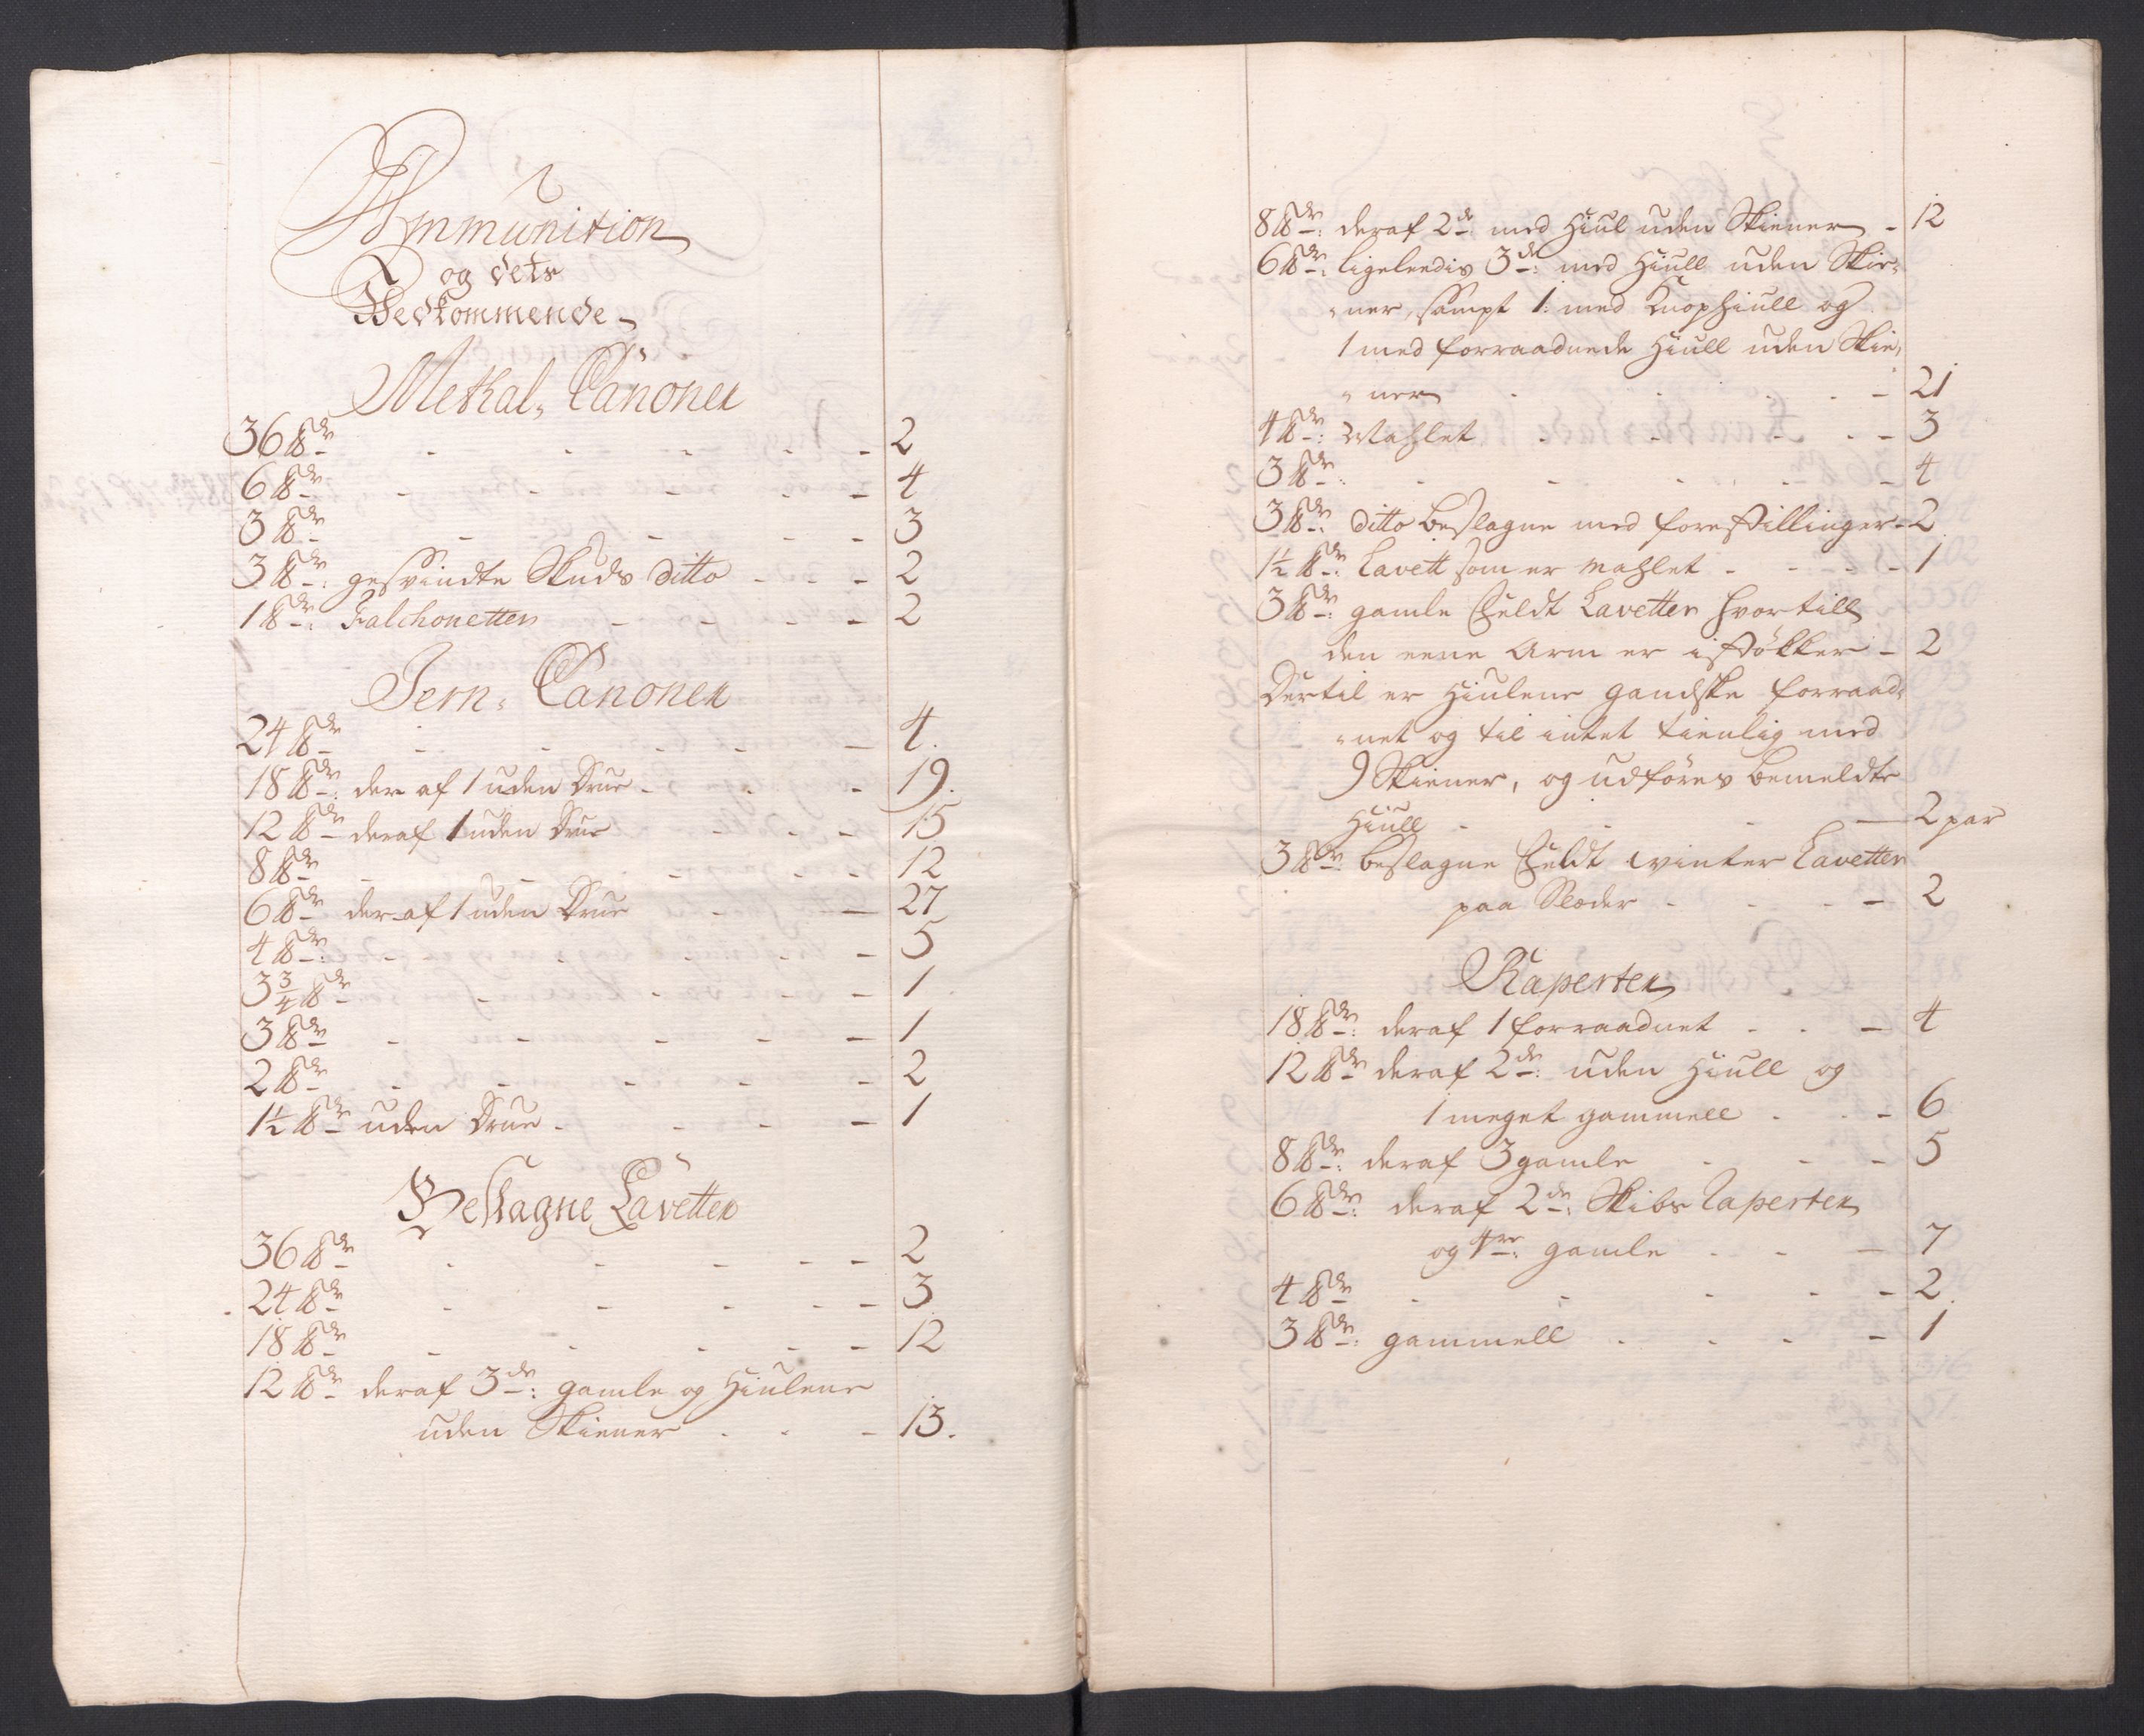 Ammunition
og dets
Vedkommende
Methal, Canoner
36 ℔dr 2
6 ℔dr 4
3 ℔dr 3
3 ℔dr: gesvindte Skuds ditto 2
1 ℔dr: Falchonetter 2
Jern, Canoner
24 ℔dr 4.
18 ℔dr: der af 1 uden Drue 19.
12 ℔dr deraf 1 uden Drue 15
8 ℔dr 12
6 ℔dr der af 1 uden Drue 27
4 ℔dr: 5
3 3/4 ℔dr 1
3 ℔dr 1
2 ℔dr 2
1½ ℔dr uden Drue 1
Beslagne Lavetter
36 ℔dr 2
24 ℔dr 3
18 ℔dr 12
12 ℔dr deraf 3de: gamle og Hiulene
uden Skiener 13.
8 ℔dr: deraf 2de med Hiul uden Skiener 12
6 ℔dr: ligeleedis 3de: med Hiull uden Skie,
,ner, sampt 1: med Knophiull og
1 med forraadnede Hiull uden Skie,
,ner 21
4 ℔dr: Mahlet 3
3 ℔dr: 4
3 ℔dr: ditto beslagne med forestillinger 2
1½ ℔dr: Lavett som er mahlet 1
3 ℔dr: gamle Feldt Lavetter hvortill
den eene Arm er istökker 2
Dertil er Hiulene gandske forraad,
,net og til intet tienlig med
9 Skiener, og udföres bemeldte
Hiull 2 par
3 ℔dr: beslagne Feldt winter Lavetter
paa Slæder 2
Raperter
18 ℔dr: deraf 1 forraadnet 4
12 ℔dr deraf 2de: uden Hiull og
1 meget gammell 6
8 ℔dr: deraf 3 gamle 5
6 ℔dr: deraf 2de: Skibs Raperter
og 4re: gamle 7
4 ℔dr 2.
3 ℔dr: gammell 1